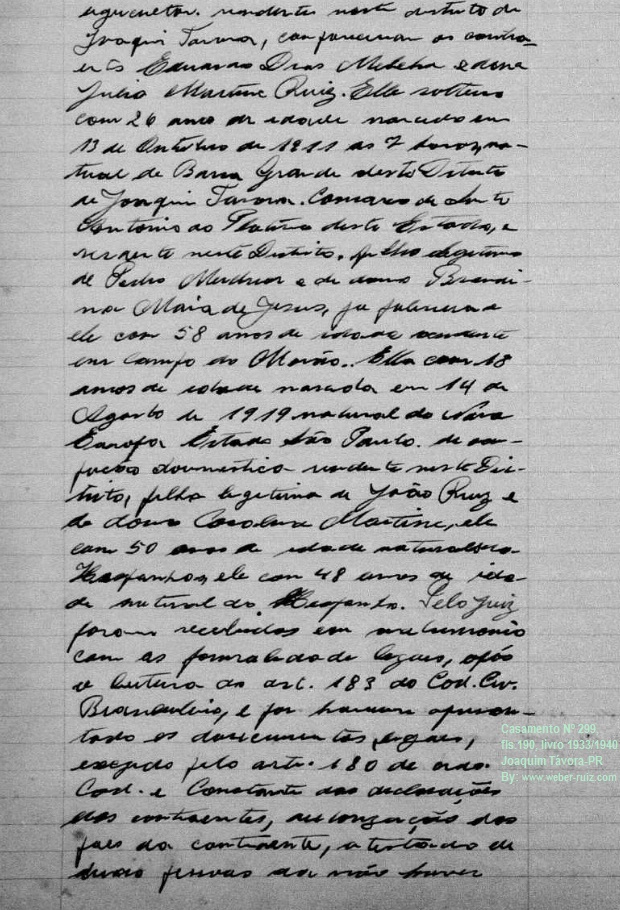 residente neste districto de
Joaquim Tavora, compareceram os contra-
entes Eduardo Dias Melcher e dona
Julia Martins Ruiz. Elle solteiro
com 26 annos de idade nascido em
13 de Outubro de 1911 as 7 horas, na-
tural de Barra Grande deste Districto
de Joaquim Tavora. Comarca de Santo
Antonio da Platina deste Estado, e
residente neste Districto, filho legitimo
de Pedro e de dona Brandi-
na Maria de Jesus, ja falecida
ele com 58 anos de idade residente
em Campo do Mourão. Ella com 18
annos de idade nascida em 14 de
Agosto de 1919 natural de Nova
Europa Estado São Paulo. de ocu-
pação domestica residente neste Dis-
trito, filha legitima de João Ruiz e
de dona Martins, ele
com 50 anos de idade natural da
Hespanha, ele com 48 anos de ida-
de natural da Hespanha. Pelo Juiz
foram recebidos em matrimonio
com as formalidade legaes, após
a leitura do art. 183 do Cod. Civ.
Brasileiro, e por haverem apresen-
tado os documentos legaes,
exegido pelo arto. 180 de
Cod. e Constante das declarações
dos contraentes, autorização dos
paes da contraente, atestado de
duas pessoas de não haver
Casamento Nº 299
fls 190, livro 1933/1940
Joaquim Távora-PR
By www.weber-ruiz.com